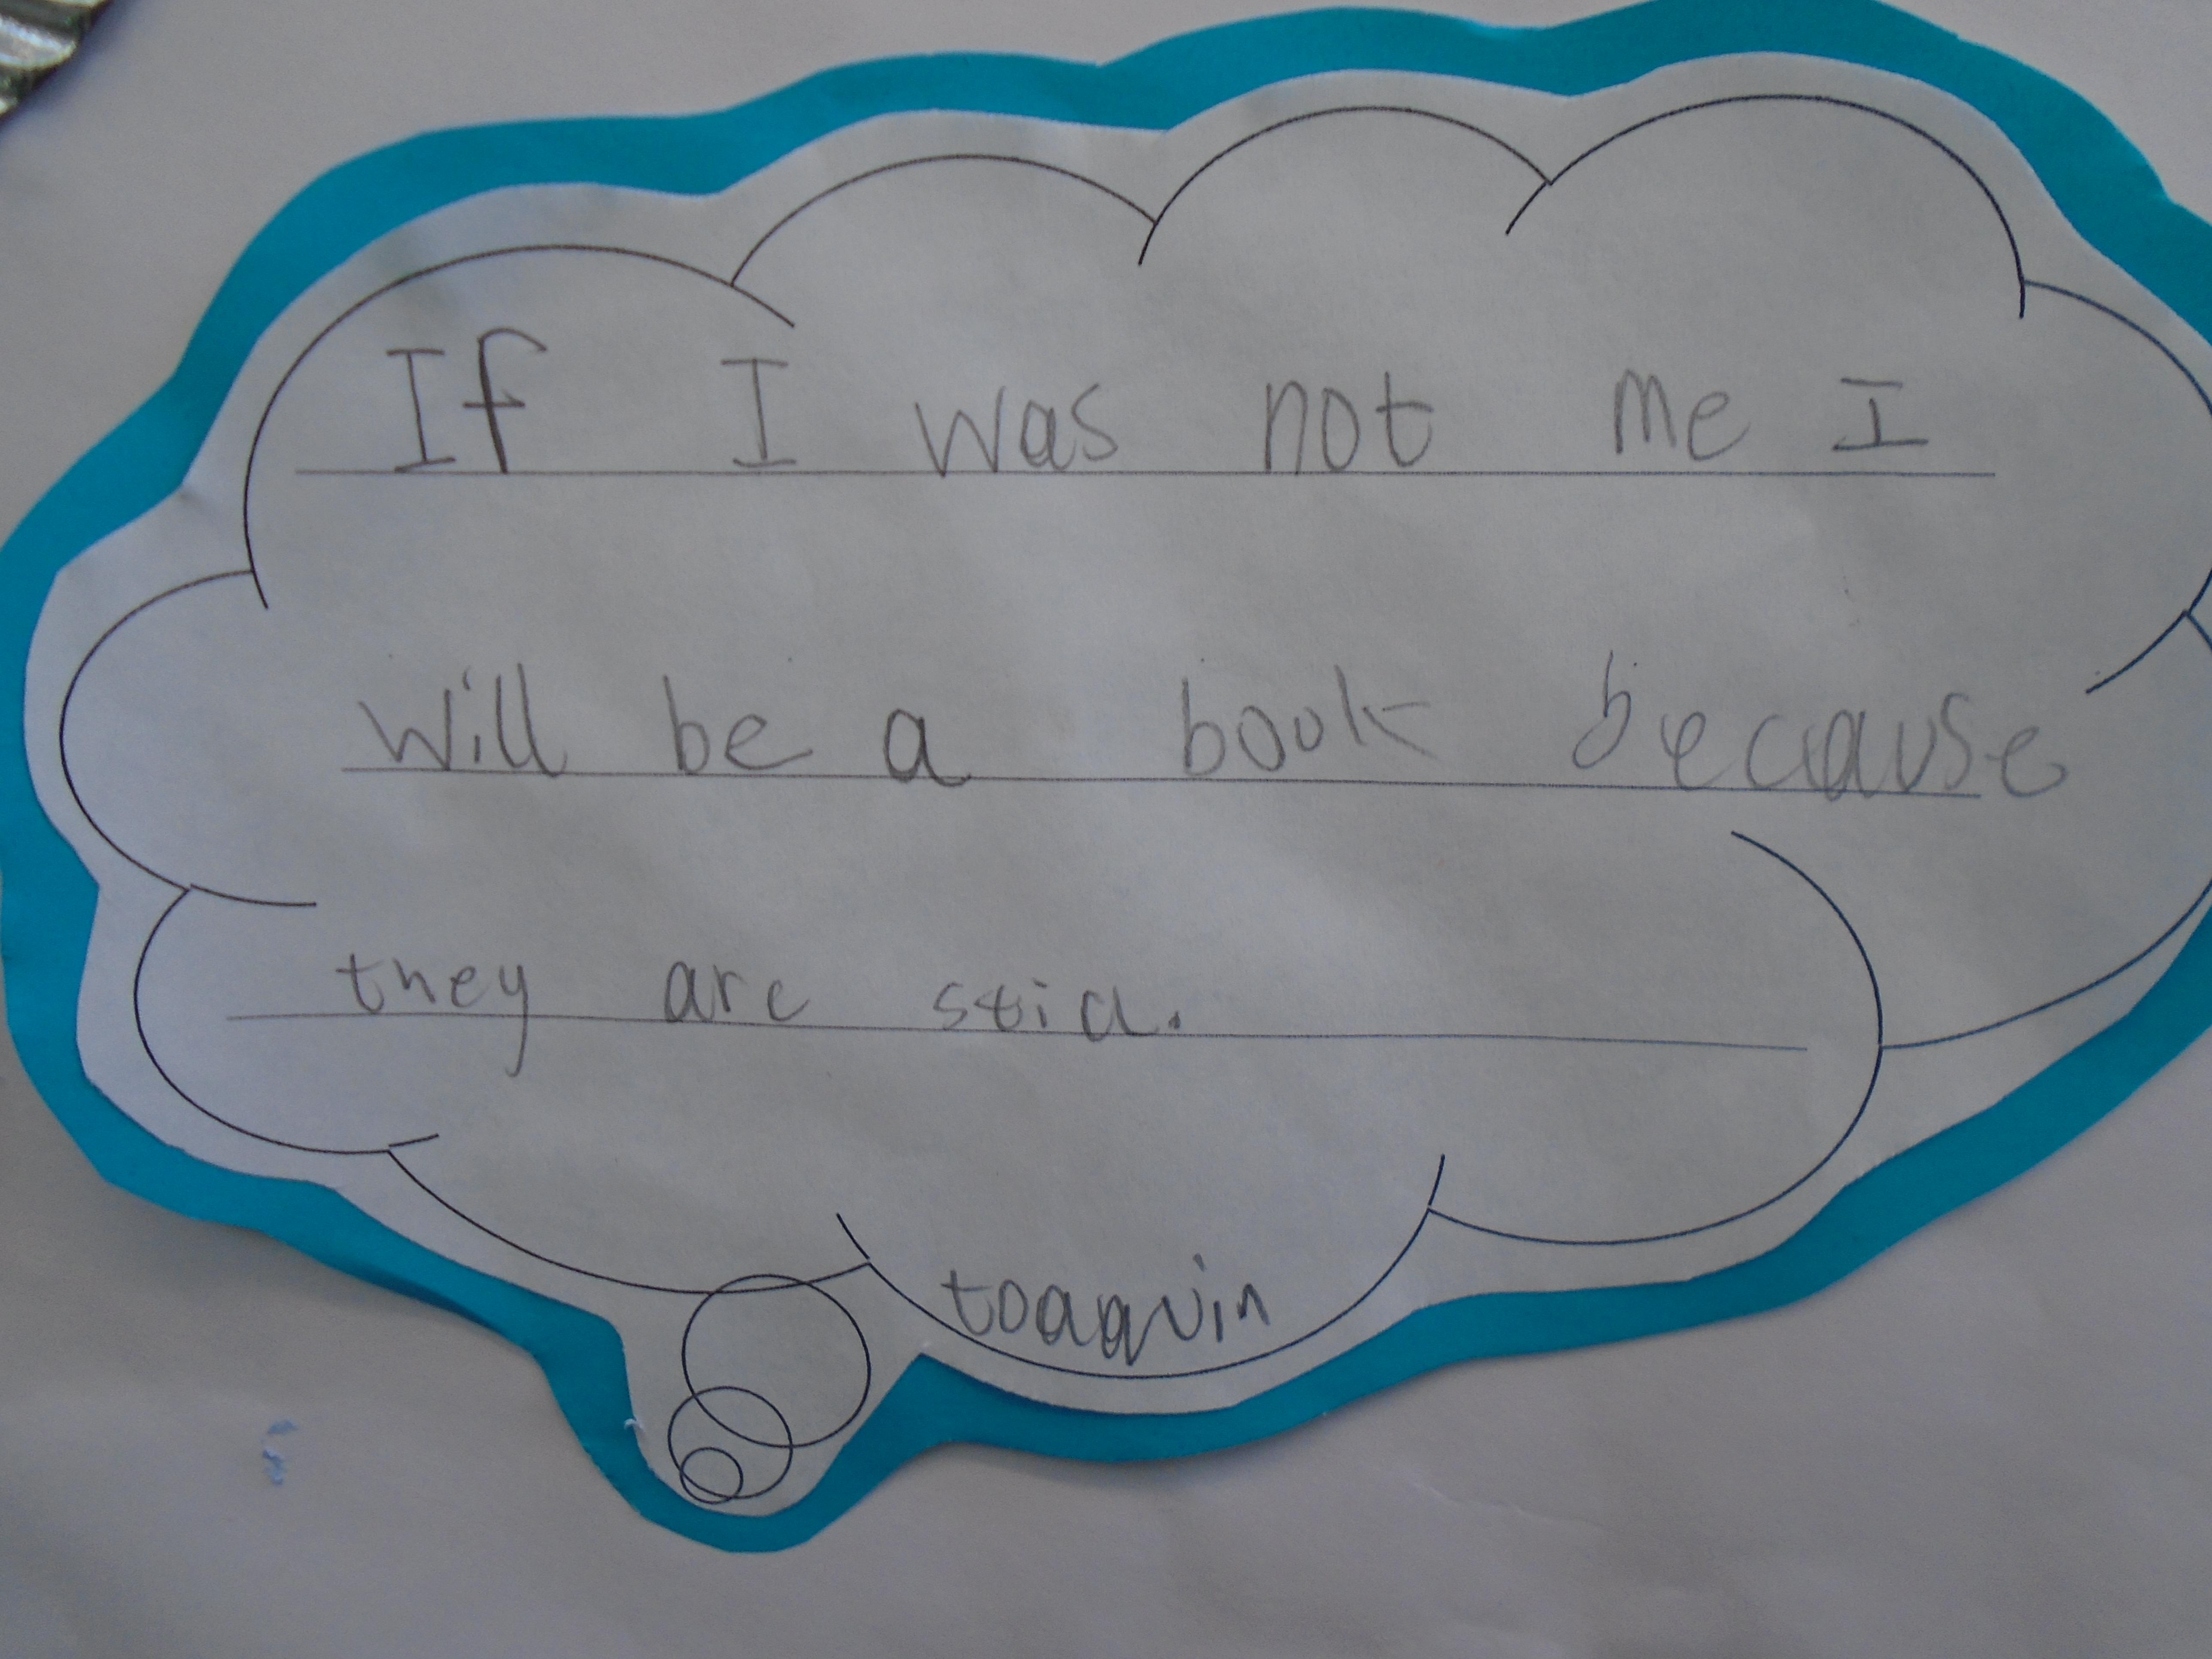 If I was not me I
will be a book because
they are
toaquin